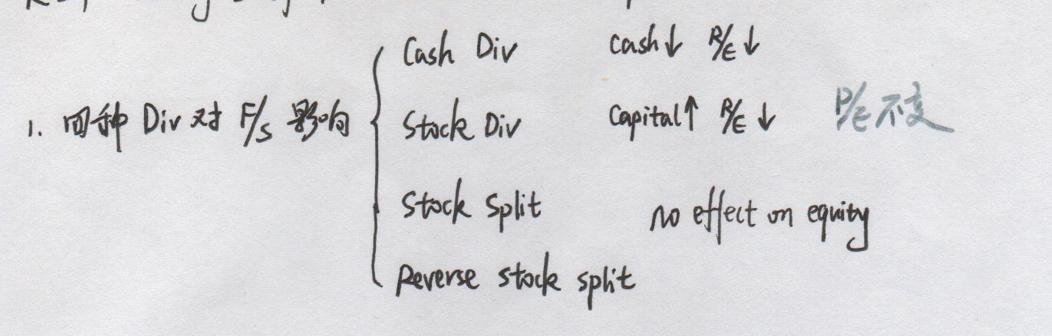 Cash Div cash↓ R/E↓
1. 四种 Div 对 F/S 影响
Stock Div Capital↑ R/E↓ P/E 不变
Stock Split no effect on equity
Reverse stock split